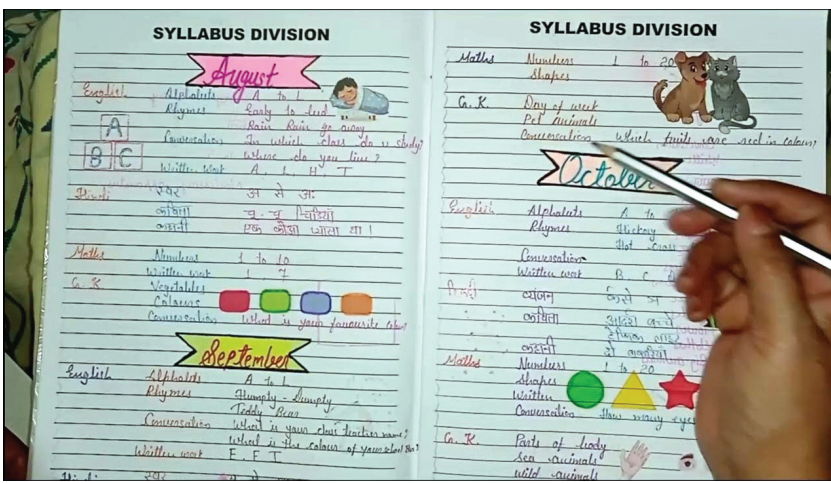 SYLLABUS DIVISION
August
English Alphabets A to L
Rhymes Early to bed
Rain Rain go away
A
B C
Conversation In which class do u study?
Where do you live?
Written work A, L, H, T
Hindi स्वर अ से अः
कविता चू - चू चिड़ियाँ
कहानी एक कौआ प्यासा था।
Maths Numbers 1 to 10
Written work 1 7
G. K Vegetables
Colours
Conversation What is your favourite colour
September
English Alphabets A to L
Rhymes Humpty - Dumpty
Teddy Bear
Conversation What is your class teacher name?
What is the colour of your school
Written work E F T
Hindi स्वर
SYLLABUS DIVISION
Maths Numbers 1 to 20
Shapes
G. K. Day of week
Pet animals
Conversation Which fruits are red in colour?
October
English Alphabets A to
Rhymes Hickory
Hot cross
Conversation
Written work B C
हिन्दी व्यंजन क से
कविता आदर्श बच्चे
कहानी दो बकरियाँ
Maths Numbers 1 to 20
Shapes
Written
Conversation How many eyes
G. K. Parts of body
Sea animals
Wild animals